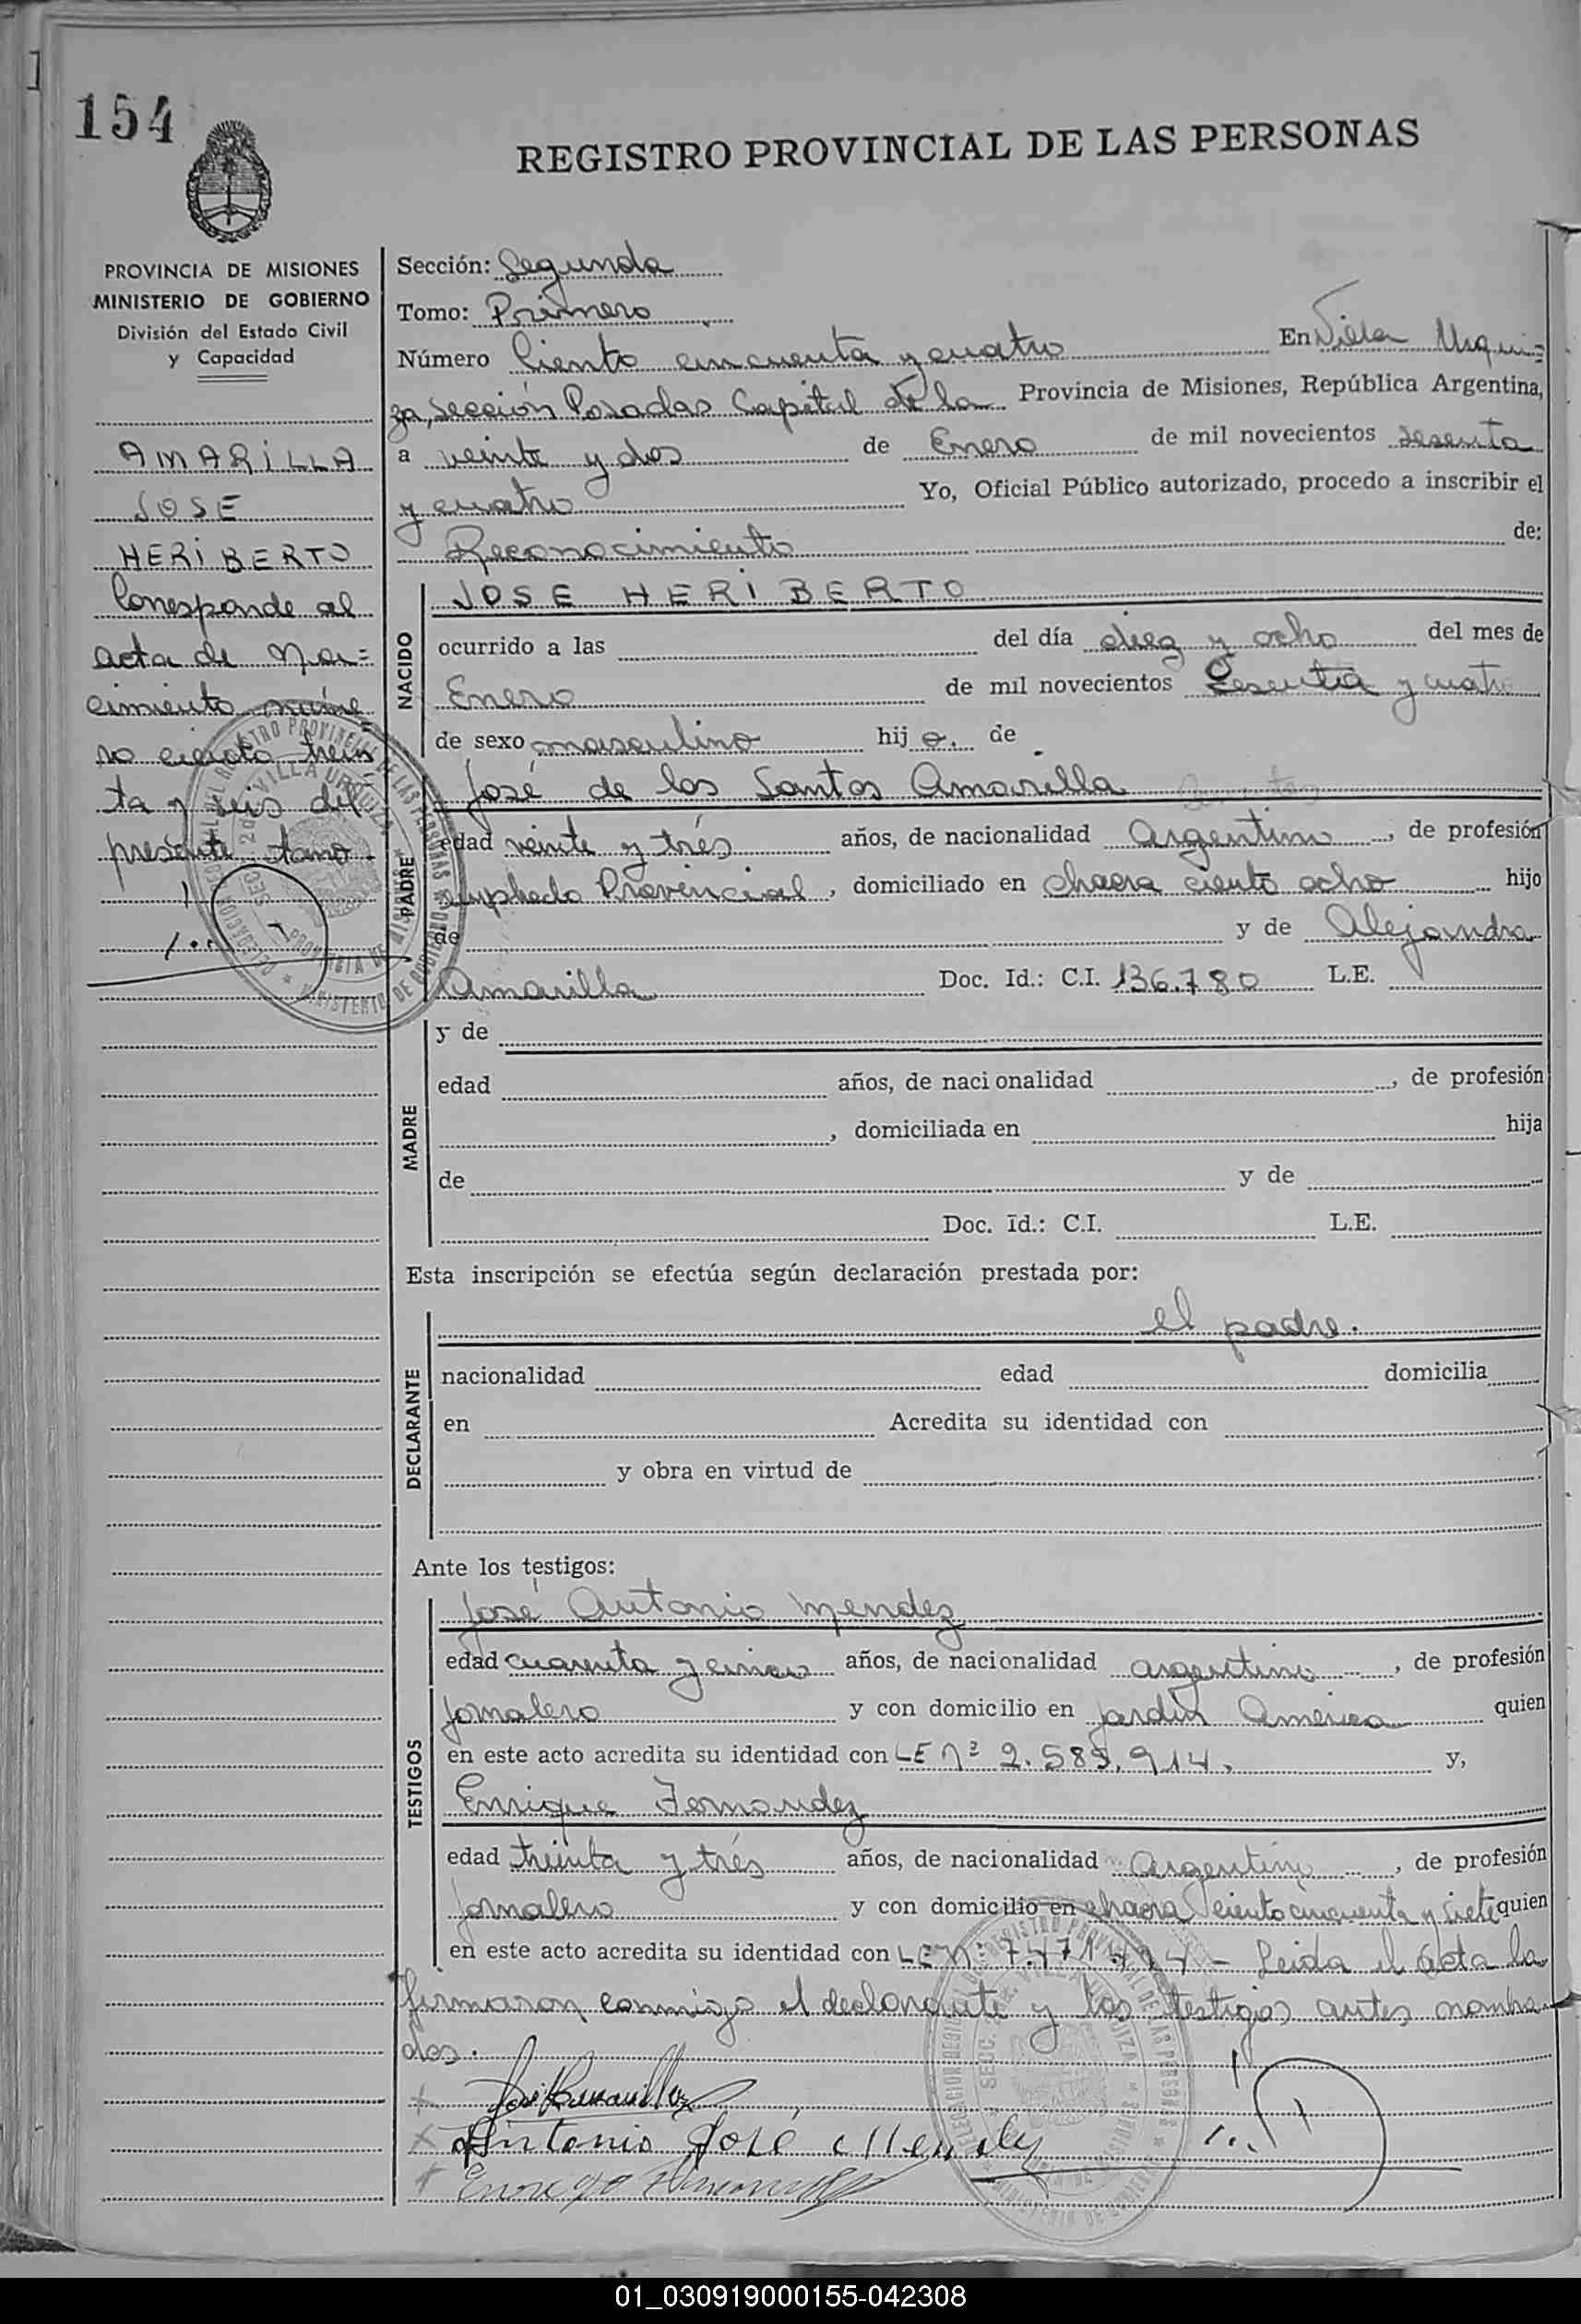 154
REGISTRO PROVINCIAL DE LAS PERSONAS
PROVINCIA DE MISIONES
MINISTERIO DE GOBIERNO
División del Estado Civil
y Capacidad
AMARILLA
JOSE
HERIBERTO
Corresponde al
acta de na=
cimiento núme
ro ciento trein
ta y seis del
presente tomo.
Sección: Segunda
Tomo: Primero
Número Ciento cincuenta y cuatro En Villa Urqui=
za, Sección Posadas Capital de la Provincia de Misiones, República Argentina,
a veinte y dos de Enero de mil novecientos sesenta
y cuatro Yo, Oficial Público autorizado, procedo a inscribir el
Reconocimiento de:
NACIDO
JOSE HERIBERTO
ocurrido a las del día diez y ocho del mes de
Enero de mil novecientos Sesenta y cuatro
de sexo masculino hijo. de
PADRE
José de los Santos Amarilla
edad veinte y trés años, de nacionalidad Argentina, de profesión
Empleado Provincial, domiciliado en chacra ciento ocho hijo
de y de Alejandra
Amarilla Doc. Id.: C.I. 136.780 L.E.
MADRE
y de
edad años, de nacionalidad , de profesión
, domiciliada en hija
de y de
Doc. Id.: C.I. L.E.
Esta inscripción se efectúa según declaración prestada por:
DECLARANTE
el padre.
nacionalidad edad domicilia
en Acredita su identidad con
y obra en virtud de
Ante los testigos:
TESTIGOS
José Antonio Mendez
edad cuarenta y cinco años, de nacionalidad argentina, de profesión
Jornalero y con domicilio en Jardín América quien
en este acto acredita su identidad con LE Nº 2.589.914. y,
Enrique Fernandez
edad treinta y trés años, de nacionalidad Argentina, de profesión
Jornalero y con domicilio en chacra ciento cincuenta y siete quien
en este acto acredita su identidad con LE Nº - Leida el acta la
firmaron conmigo el declarante y los testigos antes nombra
dos.
Antonio José Mendez
01_030919000155-042308